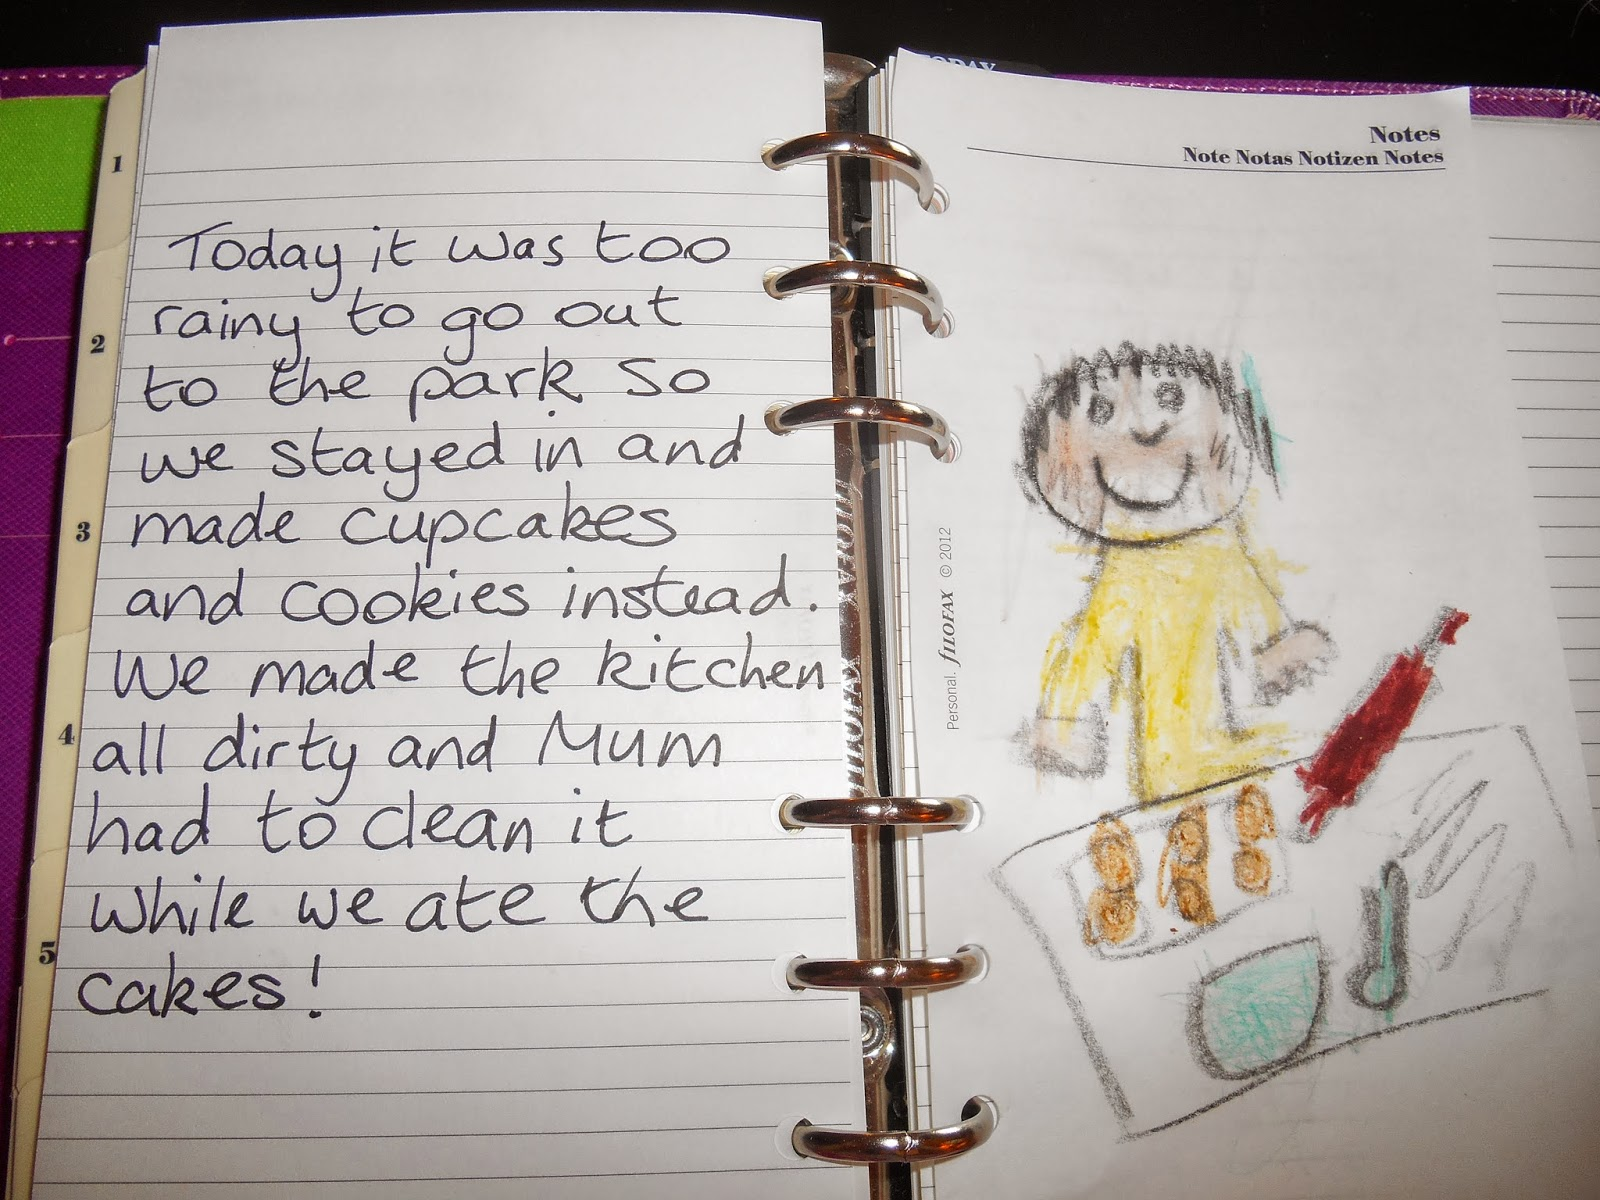 1
2
3
4
5
Today it was too
rainy to go out
to the park so
we stayed in and
made cupcakes
and cookies instead.
We made the kitchen
all dirty and Mum
had to clean it
while we ate the
cakes!
TODAY
Notes
Note Notas Notizen Notes
Personal. fILOFAX © 2012